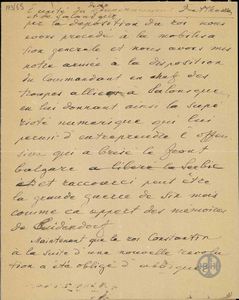 l'unité du
et de Salonique
par la déposition du roi nous
avons procédé à la mobilisa
tion générale et nous avons mis
notre armée à la disposition
du Commandant en chef des
troupes alliées à Salonique
en lui donnant ainsi la supé
riorité numérique qui lui
permit d'entreprendre l'offen
sive qui a brisé le front
bulgare a libéré la Serbie
et raccourci peut être
la grande guerre de six mois
comme ça appert des mémoires
de Ludendorf
Maintenant que le roi Constantin
à la suite d'une nouvelle révolu
tion a été obligé d'abdiquer